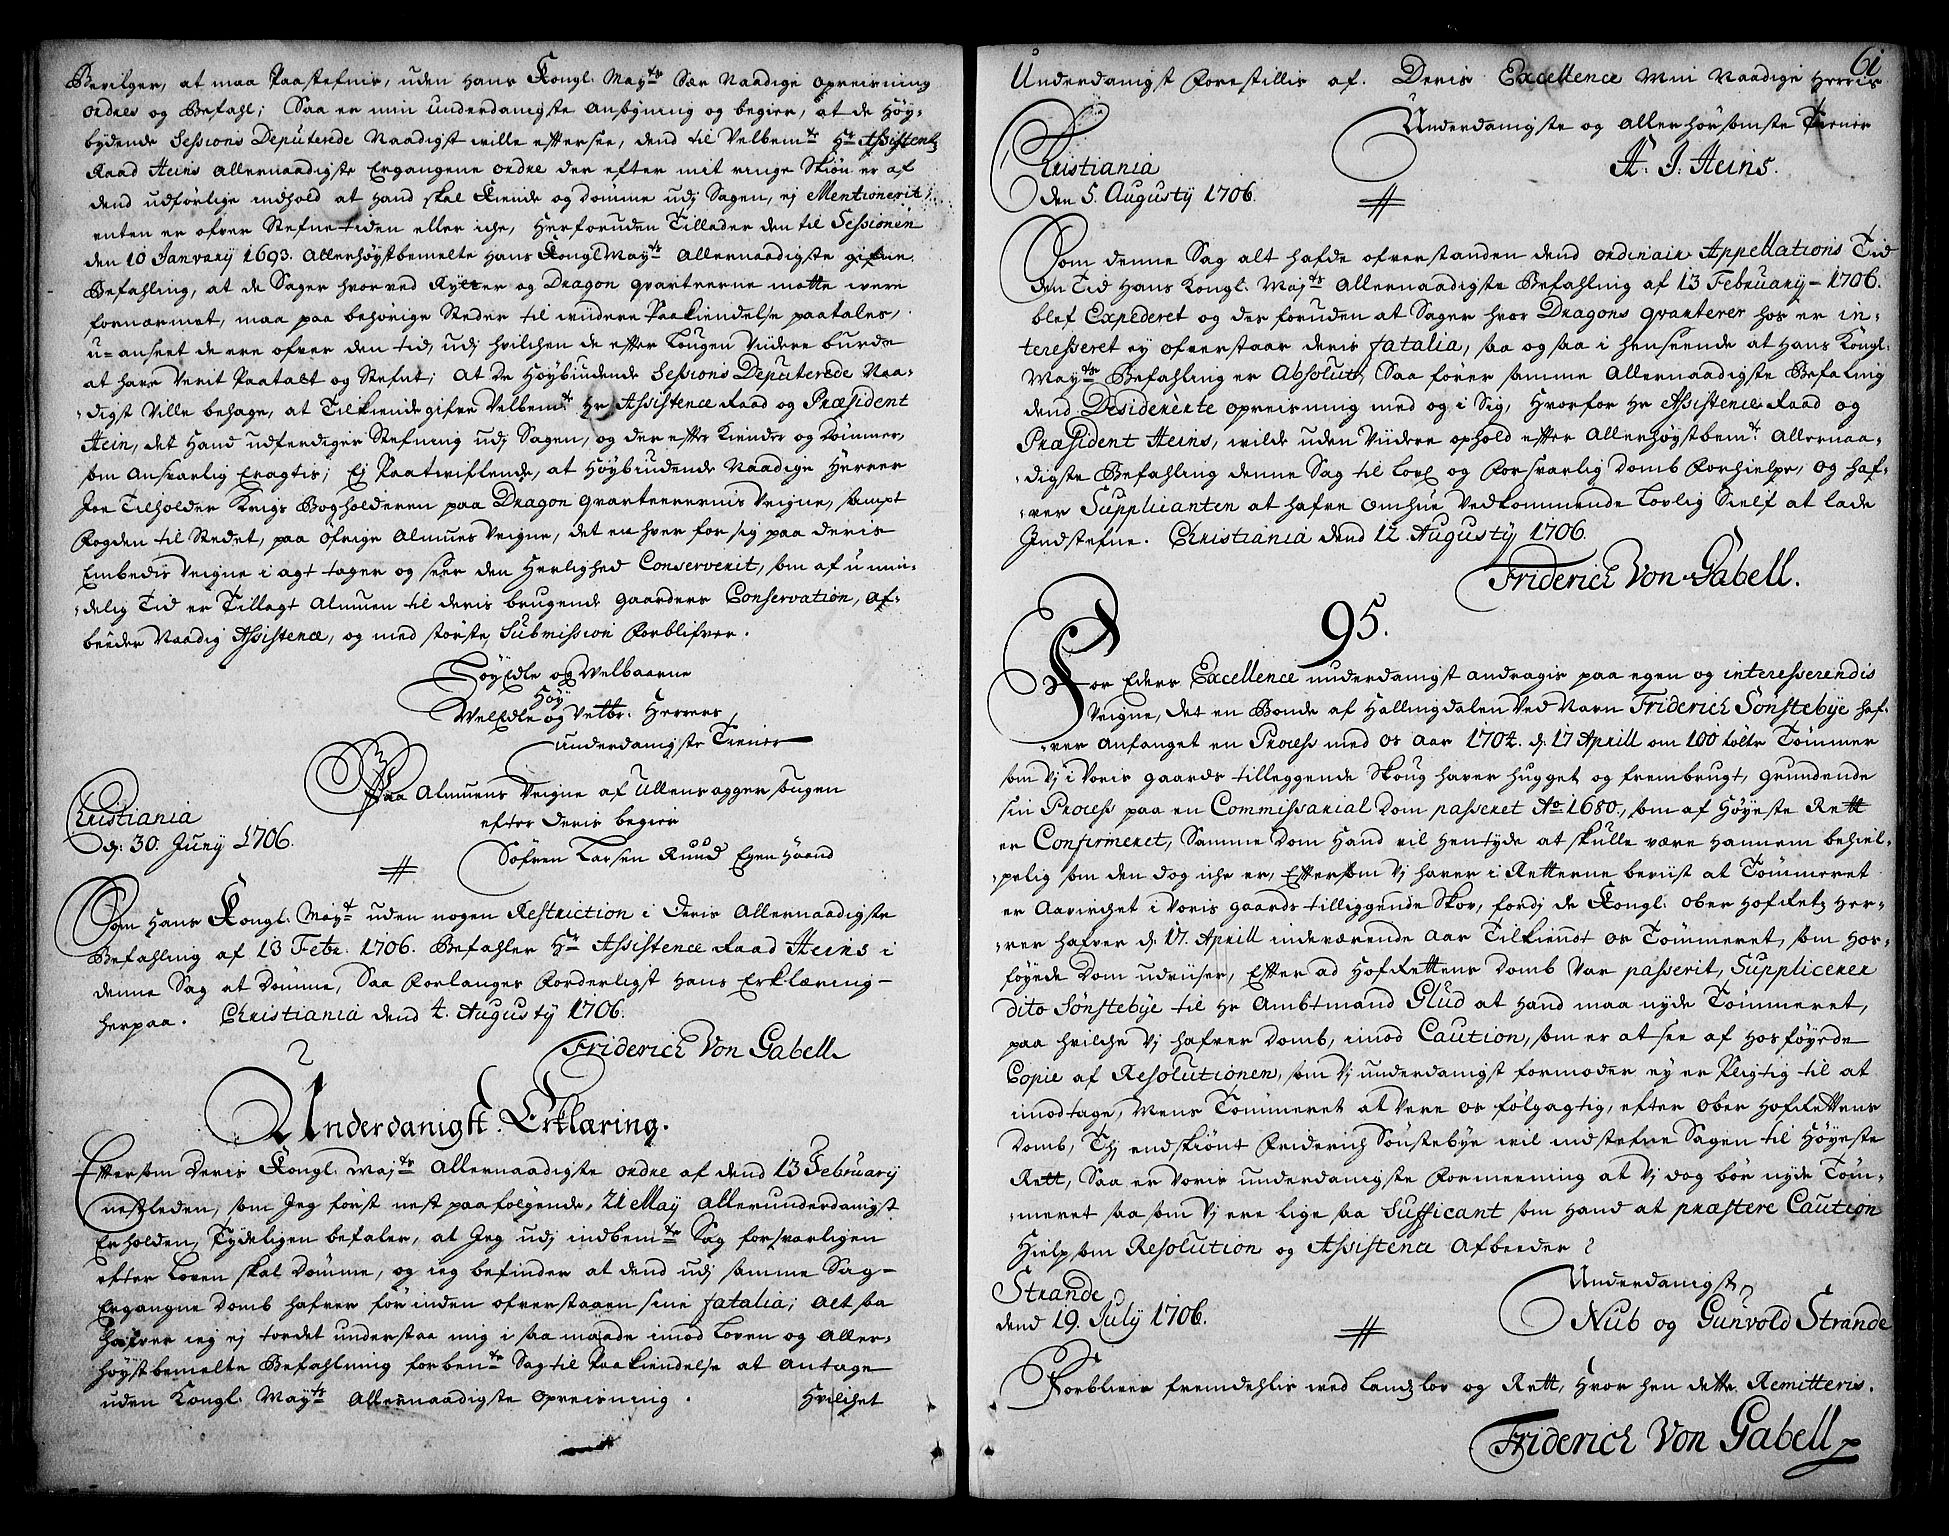 Bevilger, at maa Paastefnis, uden Hans Kongl: May:ts Sær Naadige opreisning
ordres og Befahl; Saa er min underdanigste ansøgning og begier, at de Høy-
bydende Sessions Deputerede Naadigst wille effersee, dend til Velbem:te Hr Assistentz
Raad Heins allernaadigste Ergangene ordre der efter mit ringe Skiøn er af
dend udførlige indhold at hand skal Kiende og dømme udj Sagen, ej Mentionerit,
enten er ofver Stefnetiden eller iche, Herforuden Tillader den til Sessionen
den 10 January 1693. allerhøystbemelte Hans Kongl May:ts allernaadigste gifne
Befahling, at de Sager hvorved Rytter og Dragon qvarteerne motte were
fornærmet, maa paa behørige Steder til widere Paakiendelse paatales,
u-anseet de ere ofver den tid, udj hvilchen de effter Lougen Viidere burde
at have Verit Paatalt og Stefnt; At de Høybiudende Sessions Deputerede Naa-
digst Ville behage, at Tilkiendegifve Velbem:te Hr Assistence Raad og Præsident
Hein, det Hand udferdiger Stefning udj Sagen, og der effter Kiender og Dømmer,
som ansvarlig Eragtis; Ej Paatwiflende, at Høybiudende Naadige Herrer
Joe Tilholder Krigs Bogholderen paa Dragon qvarteerernis Veigne, sampt
Fogden til Stedet, paa øfrige Almues Veigne, det en hver for sig paa deris
Embedis Veigne i agt tager og seer den Herlighed Conserverit, som af umin-
delig Tid er Tillagt Almuen til deris brugende gaarders Conservation, Af-
beeder Naadig Assistence, og med største Submission Forblifver.
HøyEdle og Welbaarne
Høy
WelEdle og Velbr: Herrers
underdanigste Tiener
Paa Almuens Veigne af Ullensagger sougen
efter deris begier
Christiania
d: 30. Juny 1706.
Søfren Larsen Ruud Egen Haand
Som Hans Kongl: May:t uden nogen Restriction i deris allernaadigste
Befahling af 13 Febr. 1706. Befahler Hr Assistence Raad Heins i
denne Sag at Dømme, Saa Forlanges Forderligst Hans Erklæring
herpaa. Christiania dend 4. Augusty 1706.
Friderich Von Gabell
Underdanigst Erklæring.
Effersom Deris Kongl. May:ts allernaadigste ordre af dend 13 February
nestleden, som Jeg først nest paafølgende, 21 May allerunderdanigst
Erholden, Tydeligen befaler, at Jeg udj indbem:te Sag forsvarligen
efter Loven skal dømme, og ieg befinder at dend udj samme Sag
Ergangne Domb hafver før inden ofverstaaen sine fatalia; alt saa
hafver ieg ej tordet understaa mig i saa maade imod Loven og aller-
høystbemelte Befahlning forben:te Sag til Paakiendelse at Antage
uden Kongl: May:ts allernaadigste opreisning.
Hvilchet
61
Underdanigst Forestillis af. Deris Excellence Min Naadige Herris
Underdanigste og allerhørsomste Tiener
H. J. Heins.
Christiania
den 5. Augusty 1706.
Som denne Sag alt hafde ofverstanden dend ordinair Appellations Tid
den Tid Hans Kongl: May:ts allernaadigste Befahling af 13 February 1706.
blef Expederet og der foruden at Sager hvor Dragons qvarterer hos er in-
teresseret ey ofverstaar deris fatalia, saa og saa i henseende at Hans Kongl:
May:ts Befahling er Absolut, Saa fører samme allernaadigste Befaling
dend Desiderèrte opreisning med og i Sig, Hvorfor Hr Assistence Raad og
Præsident Heins, wilde uden Viidere ophold effter allerhøystbem:te allernaa-
digste Befahling denne Sag til Lovl og Forsvarlig Domb Forhielpe, og haf-
ver Suppliianten at hafve omhue Vedkommende Lovlig Sielf at lade
Indstefne. Christiania dend 12 Augusty 1706.
Friderich Von Gabell.
95.
For Eders Excellence underdanigst andragis paa egen og interesserendis
Veigne, det en Bonde af Hallingdalen Ved Navn Friderich Sønstebye haf-
ver anfanget en Process med os aar 1704. d: 17 Aprill om 100 tolte Tømmer
som Vj i Voris gaards tilleggende Skoug haver hugget og frembrugt, Grundende
sin Process paa en Commissarial Dom passeret Ao 1680, som af Høyeste Rett
er Confirmeret, Samme Dom Hand vil Hentyde at skulle være Hannem behiel-
pelig som den dog iche er, Effersom Vj haver i Retterne beviist at Tømmeret
er Aavirchet i Voris gaards tilliggende Skov, fordj de Kongl: Ober Hof Retz Her-
rer hafver d: 17. Aprill indeværende Aar Tilkiendt os Tømmeret, som Hos-
føyede Dom udviiser, Effter ad Hof Rettens Domb Var passerit, Supplicerer
dito Sønstebye til Hr Ambtmand Glud at Hand maa nyde Tømmeret,
paa hvilche Vj hafver Domb, imod Caution, som er at see af Hosføyede
Copie af Resolutionen, som Vj underdanigst formoder ey er Pligtig til at
imodtage, Mens Tømmeret at Vere os følgagtig, efter Ober Hof Rettens
Domb, Thj endskiønt Friderich Sønstebye vil indstefne Sagen til Høyeste
Rett, Saa er Voris underdanigste Formeening at Vj dog bør nyde Tøm-
meret saa som Vj ere lige saa Sufficant som Hand at præstere Caution
Hielpsom Resolution og Assistence Afbeeder
Underdanigst
Strande
dend 19. July 1706.
Nub og Gunvold Strande
Forbliver fremdehlis ved Landz lov og Rett, Hvor hen dette Remitteris.
Friderich Von Gabell